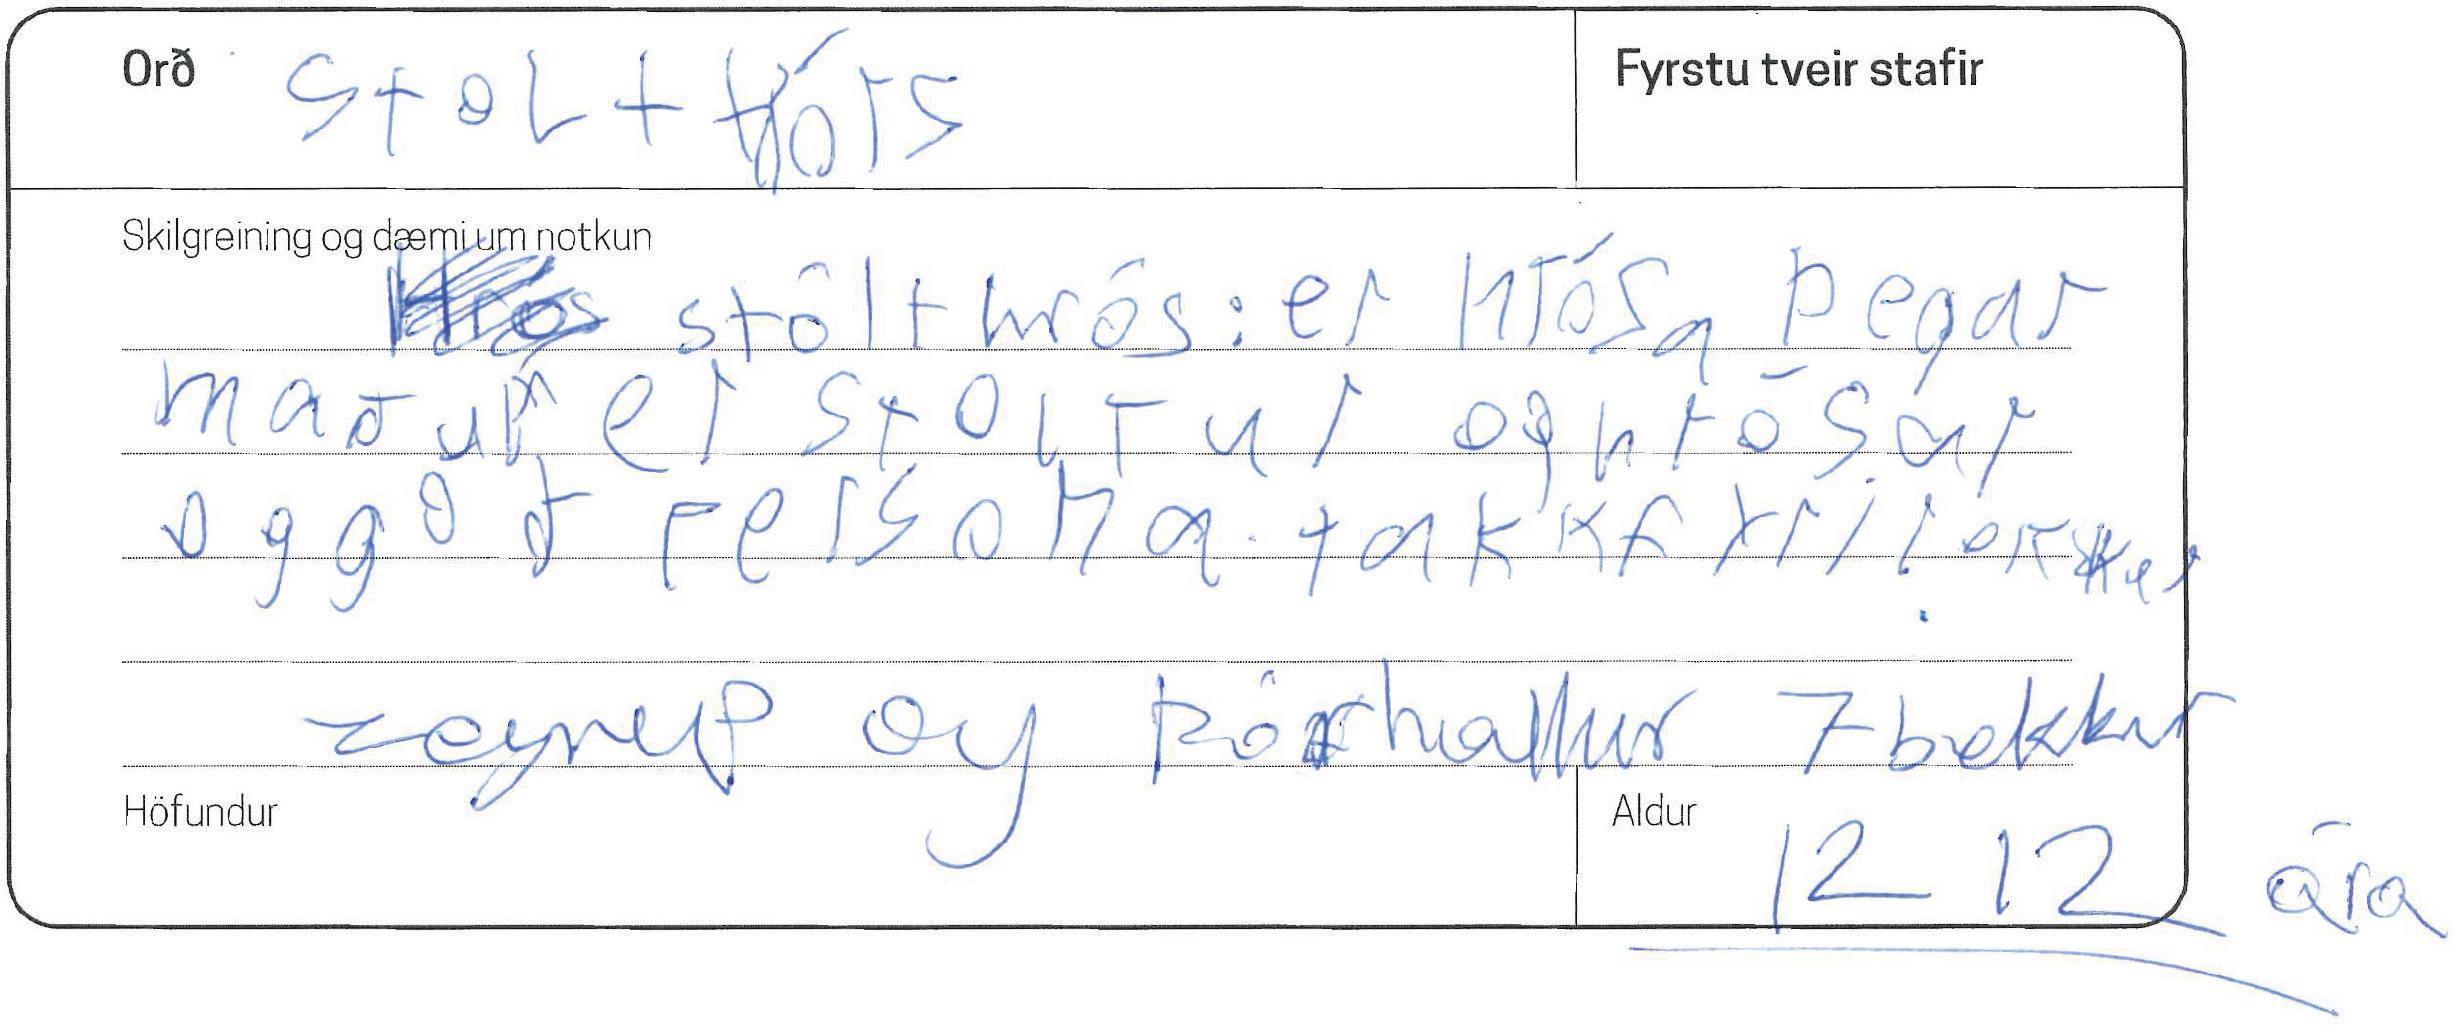 Orð stolt hórs
Fyrstu tveir stafir
Skilgreining og dæmi um notkun
stólt hrós: er hrósa þegar
maður er stoltur og hrósar
og góð persona. takk fyrir okkur
zeynep og Þórhallur 7 bekkur
Höfundur
Aldur
12 12 ára